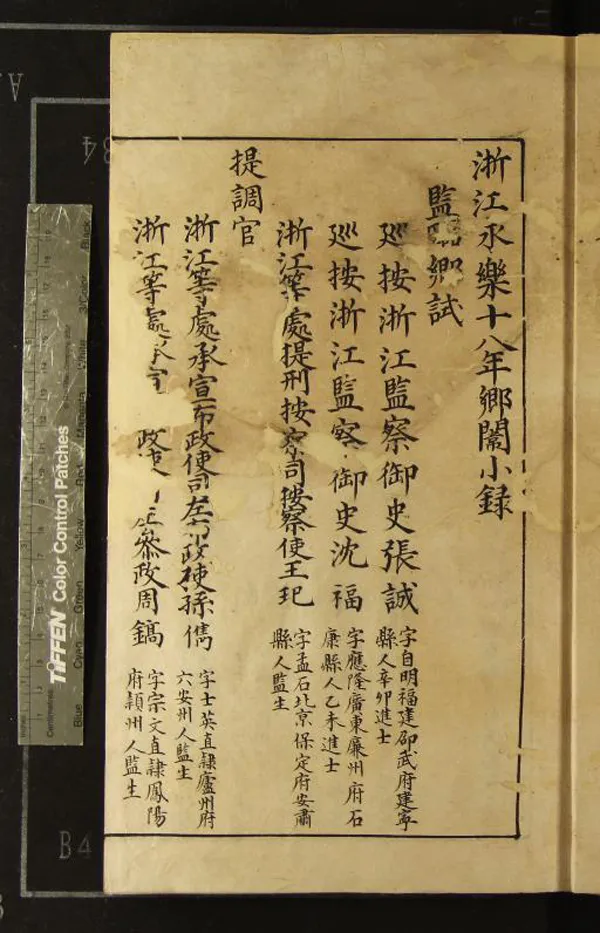 浙江永樂十八年鄉闈小録
監 鄉試
廵按浙江監察御史張誠
字自明福建邵武府建寧
縣人辛卯進士
廵按浙江監察御史沈福
字應隆廣東廉州府石
康縣人乙未進士
浙江等處提刑按察司按察使王玘
字孟石北京保定府安肅
縣人監生
提調官
浙江等處承宣布政使司左布政使孫儁
字士英直隷廬州府
六安州人監生
浙江等處承宣 政使 左叅政周鎬
字宗文直隷鳳陽
府潁州人監生
TIFFEN Color Control Patches
Inches
Centimetres
Blue
Cyan
Green
Yellow
Red
Magenta
White
3/Color
Black
B4